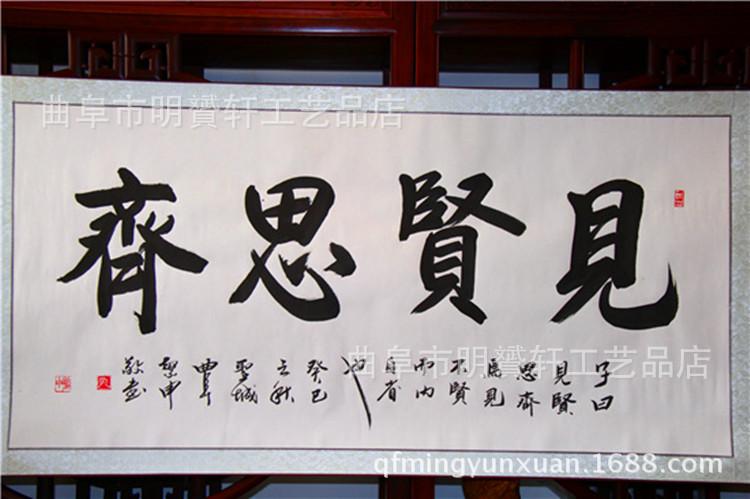 曲阜市明贇轩工艺品店
見賢思齊
子曰
見賢
思齊
焉見
不賢
而内
自省
也
癸巳
立秋
聖城
曲阜
敬書
曲阜市明贇轩工艺品店
qfmingyunxuan.1688.com